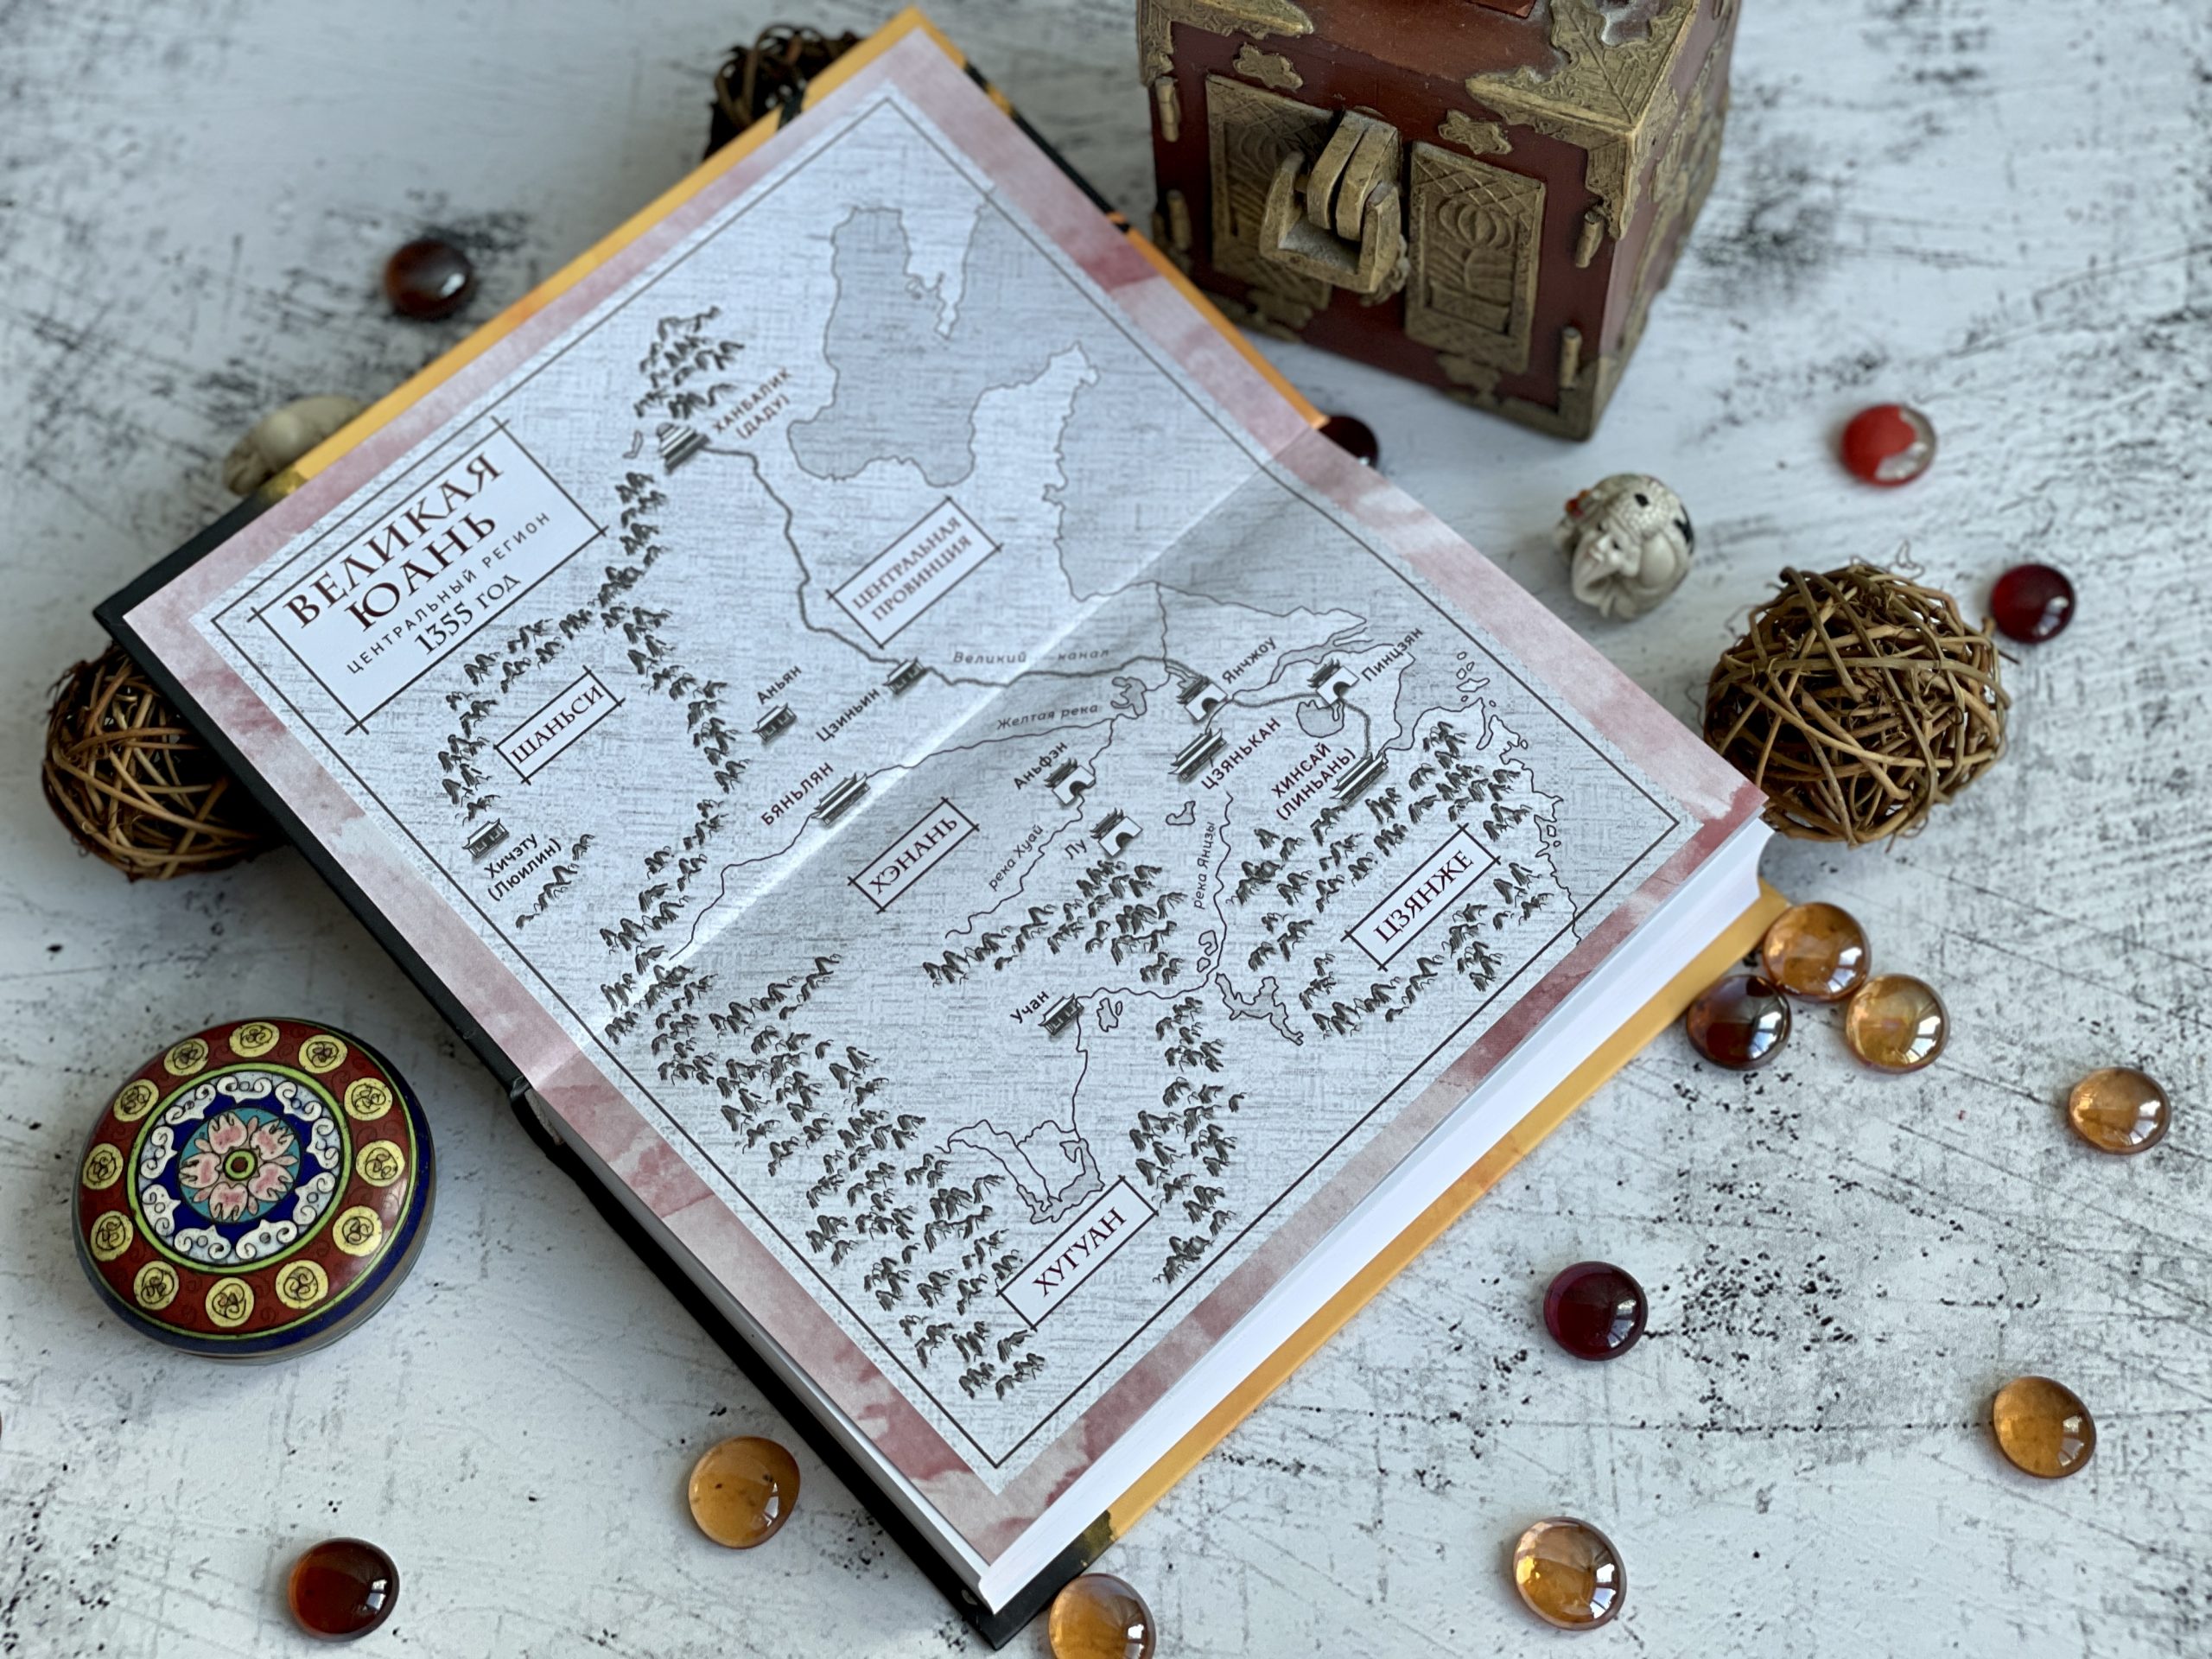 ВЕЛИКАЯ
ЮАНЬ
ЦЕНТРАЛЬНЫЙ РЕГИОН
1355 ГОД
ХАНБАЛИК
(ДАДУ)
ЦЕНТРАЛЬНАЯ
ПРОВИНЦИЯ
ШАНЬСИ
Аньян
Цзиньин
Великий канал
Желтая река
Янчжоу
Пинцзян
Хичэту
(Люилин)
БЯНЬЛЯН
Аньфэн
ЦЗЯНЬКАН
ХИНСАЙ
(ЛИНЬАНЬ)
ХЭНАНЬ
река Хуай
Лу
река Янцзы
ЦЗЯНЖЕ
Учан
ХУГУАН